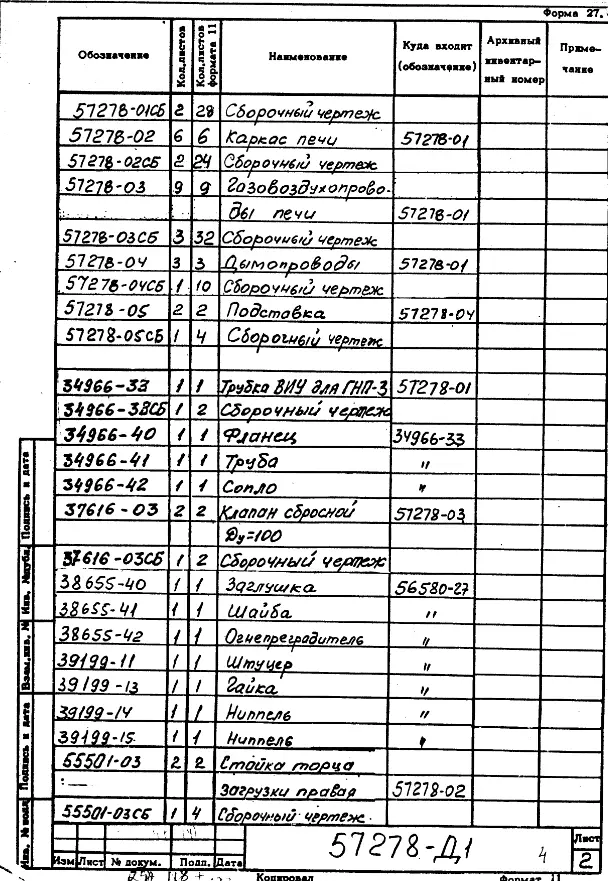 Форма 27.
Обозначение Кол.листов Кол.листов формата 11 Наименование Куда входит (обозначение) Архивный инвентарный номер Примечание
57278-01СБ 2 28 Сборочный чертеж
57278-02 6 6 Каркас печи 57278-01
57278-02СБ 2 24 Сборочный чертеж
57278-03 9 9 Газовоздухопрово-
ды печи 57278-01
57278-03СБ 3 32 Сборочный чертеж
57278-04 3 3 Дымопроводы 57278-01
57278-04СБ 1 10 Сборочный чертеж
57278-05 2 2 Подставка 57278-04
57278-05СБ 1 4 Сборочный чертеж
34966-33 1 1 Трубка ВИУ для ГНП-3 57278-01
34966-38СБ 1 2 Сборочный чертеж
34966-40 1 1 Фланец 34966-33
34966-41 1 1 Труба "
34966-42 1 1 Сопло "
37616-03 2 2 Клапан сбросной 57278-03
Ду=100
37616-03СБ 1 2 Сборочный чертеж
38655-40 1 1 Заглушка 56580-27
38655-41 1 1 Шайба "
38655-42 1 1 Огнепреградитель "
39199-11 1 1 Штуцер "
39199-13 1 1 Гайка "
39199-14 1 1 Ниппель "
39199-15 1 1 Ниппель "
55501-03 2 2 Стойка торца
загрузки правая 57278-02
55501-03СБ 1 4 Сборочный чертеж
Подпись и дата
Инв. № дубл.
Взам.инв. №
Подпись и дата
Инв. № подл.
57278-Д1 4 Лист
2
Изм Лист № докум. Подп. Дата
Копировал Формат 11